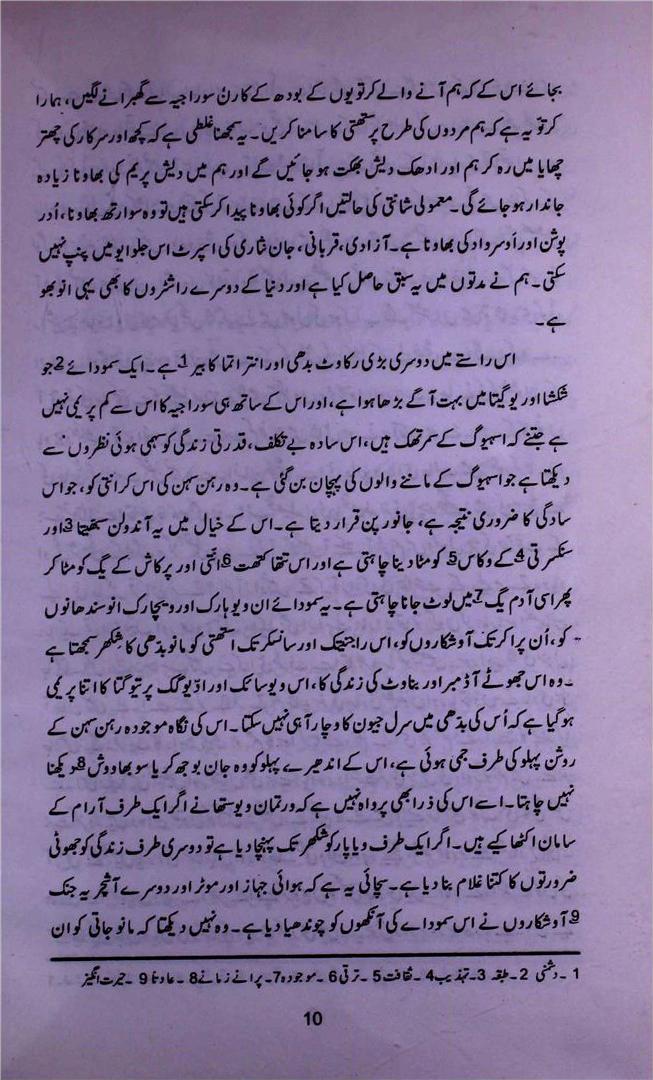 بجائے اس کے کہ ہم آنے والے کرتویوں کے بودھ کے کارن سوراجیہ سے گھبرانے لگیں، ہمارا
کرتو یہ ہے کہ ہم مردوں کی طرح پرستھتی کا سامنا کریں۔ یہ سمجھنا غلطی ہے کہ کچھ اور سرکار کی چھتر
چھایا میں رہ کر ہم اور ادھک دیش بھکت ہو جائیں گے اور ہم میں دیش پریم کی بھاونا زیادہ
جاندار ہو جائے گی۔ معمولی شانتی کی حالتیں اگر کوئی بھاونا پیدا کر سکتی ہیں تو وہ سوارتھ بھاونا، اُدر
پوشن اور اَوسرواد کی بھاونا ہے۔ آزادی، قربانی، جان نثاری کی اسپرٹ اس جلوایو میں پنپ نہیں
سکتی۔ ہم نے مدتوں میں یہ سبق حاصل کیا ہے اور دنیا کے دوسرے راشٹروں کا بھی یہی انوبھو
ہے۔
اس راستے میں دوسری بڑی رکاوٹ بدھی اور انتراتما کا بیر 1 ہے۔ ایک سمودائے 2 جو
شکشا اور یوگیتا میں بہت آگے بڑھا ہوا ہے، اور اس کے ساتھ ہی سوراجیہ کا اس سے کم پریمی نہیں
ہے جتنے کہ اسہیوگ کے سمرتھک ہیں، اس سادہ بے تکلف، قدرتی زندگی کو سہمی ہوئی نظروں سے
دیکھتا ہے جو اسہیوگ کے ماننے والوں کی پہچان بن گئی ہے۔ وہ رہن سہن کی اس کرانتی کو، جو اس
سادگی کا ضروری نتیجہ ہے، جانور پن قرار دیتا ہے۔ اس کے خیال میں یہ آندولن سبھیتا 3 اور
سنسکرتی 4 کے وکاس 5 کو مٹا دینا چاہتی ہے اور اس تتھا کتھت 6 انتی اور پرکاش کے یگ کو مٹا کر
پھر اسی آدم یگ 7 میں لوٹ جانا چاہتی ہے۔ یہ سمودائے ان ویوہارک اور ویچارک انوسندھانوں
کو، اُن پراکرتک آوشکاروں کو، اس راجنیتک اور سانسکرتک استھتی کو مانو بدھی کا شکھر سمجھتا ہے
۔ وہ اس جھوٹے آڈمبر اور بناوٹ کی زندگی کا، اس ویوسائک اور اوّیوگک پرتیوگتا کا اتنا پریمی
ہو گیا ہے کہ اُس کی بدھی میں سرل جیون کا وچار آ ہی نہیں سکتا۔ اس کی نگاہ موجودہ رہن سہن کے
روشن پہلو کی طرف جمی ہوئی ہے، اس کے اندھیرے پہلو کو وہ جان بوجھ کر یا سوبھاووش 8 دیکھنا
نہیں چاہتا۔ اسے اس کی ذرا بھی پرواہ نہیں ہے کہ ورتمان ویوستھا نے اگر ایک طرف آرام کے
سامان اکٹھا کیے ہیں۔ اگر ایک طرف ویاپار کو شکھر تک پہنچا دیا ہے تو دوسری طرف زندگی کو جھوٹی
ضرورتوں کا کتنا غلام بنا دیا ہے۔ سچائی یہ ہے کہ ہوائی جہاز اور موٹر اور دوسرے آشچریہ جنک
9 آوشکاروں نے اس سموداے کی آنکھوں کو چوندھیا دیا ہے۔ وہ نہیں دیکھتا کہ مانو جاتی کو ان
1 ۔ دشمنی 2۔ طبقہ 3۔ تہذیب 4۔ ثقافت 5۔ ترقی 6۔ موجودہ 7۔ پرانے زمانے 8۔ عادتاً 9۔ حیرت انگیز
10